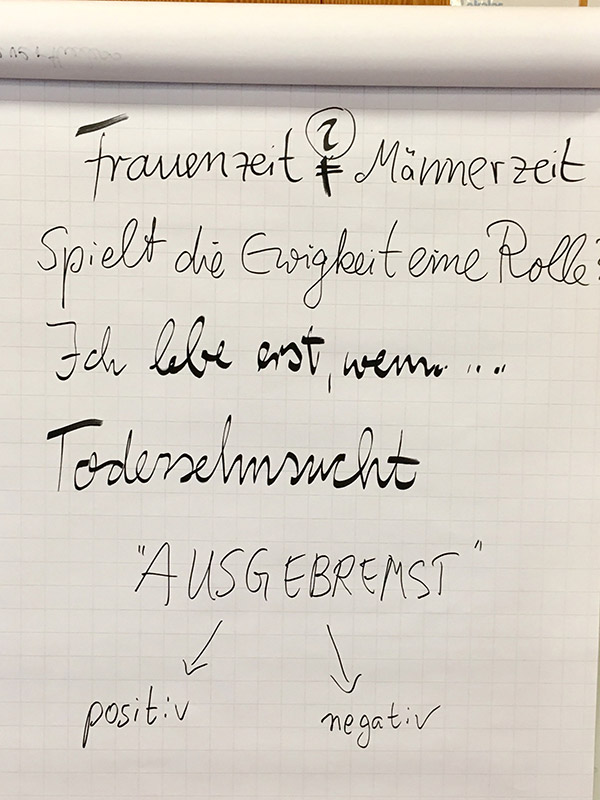 Frauenzeit ≠ ? Männerzeit
Spielt die Ewigkeit eine Rolle?
Ich lebe erst, wenn ....
Todessehnsucht
"AUSGEBREMST"
positiv negativ